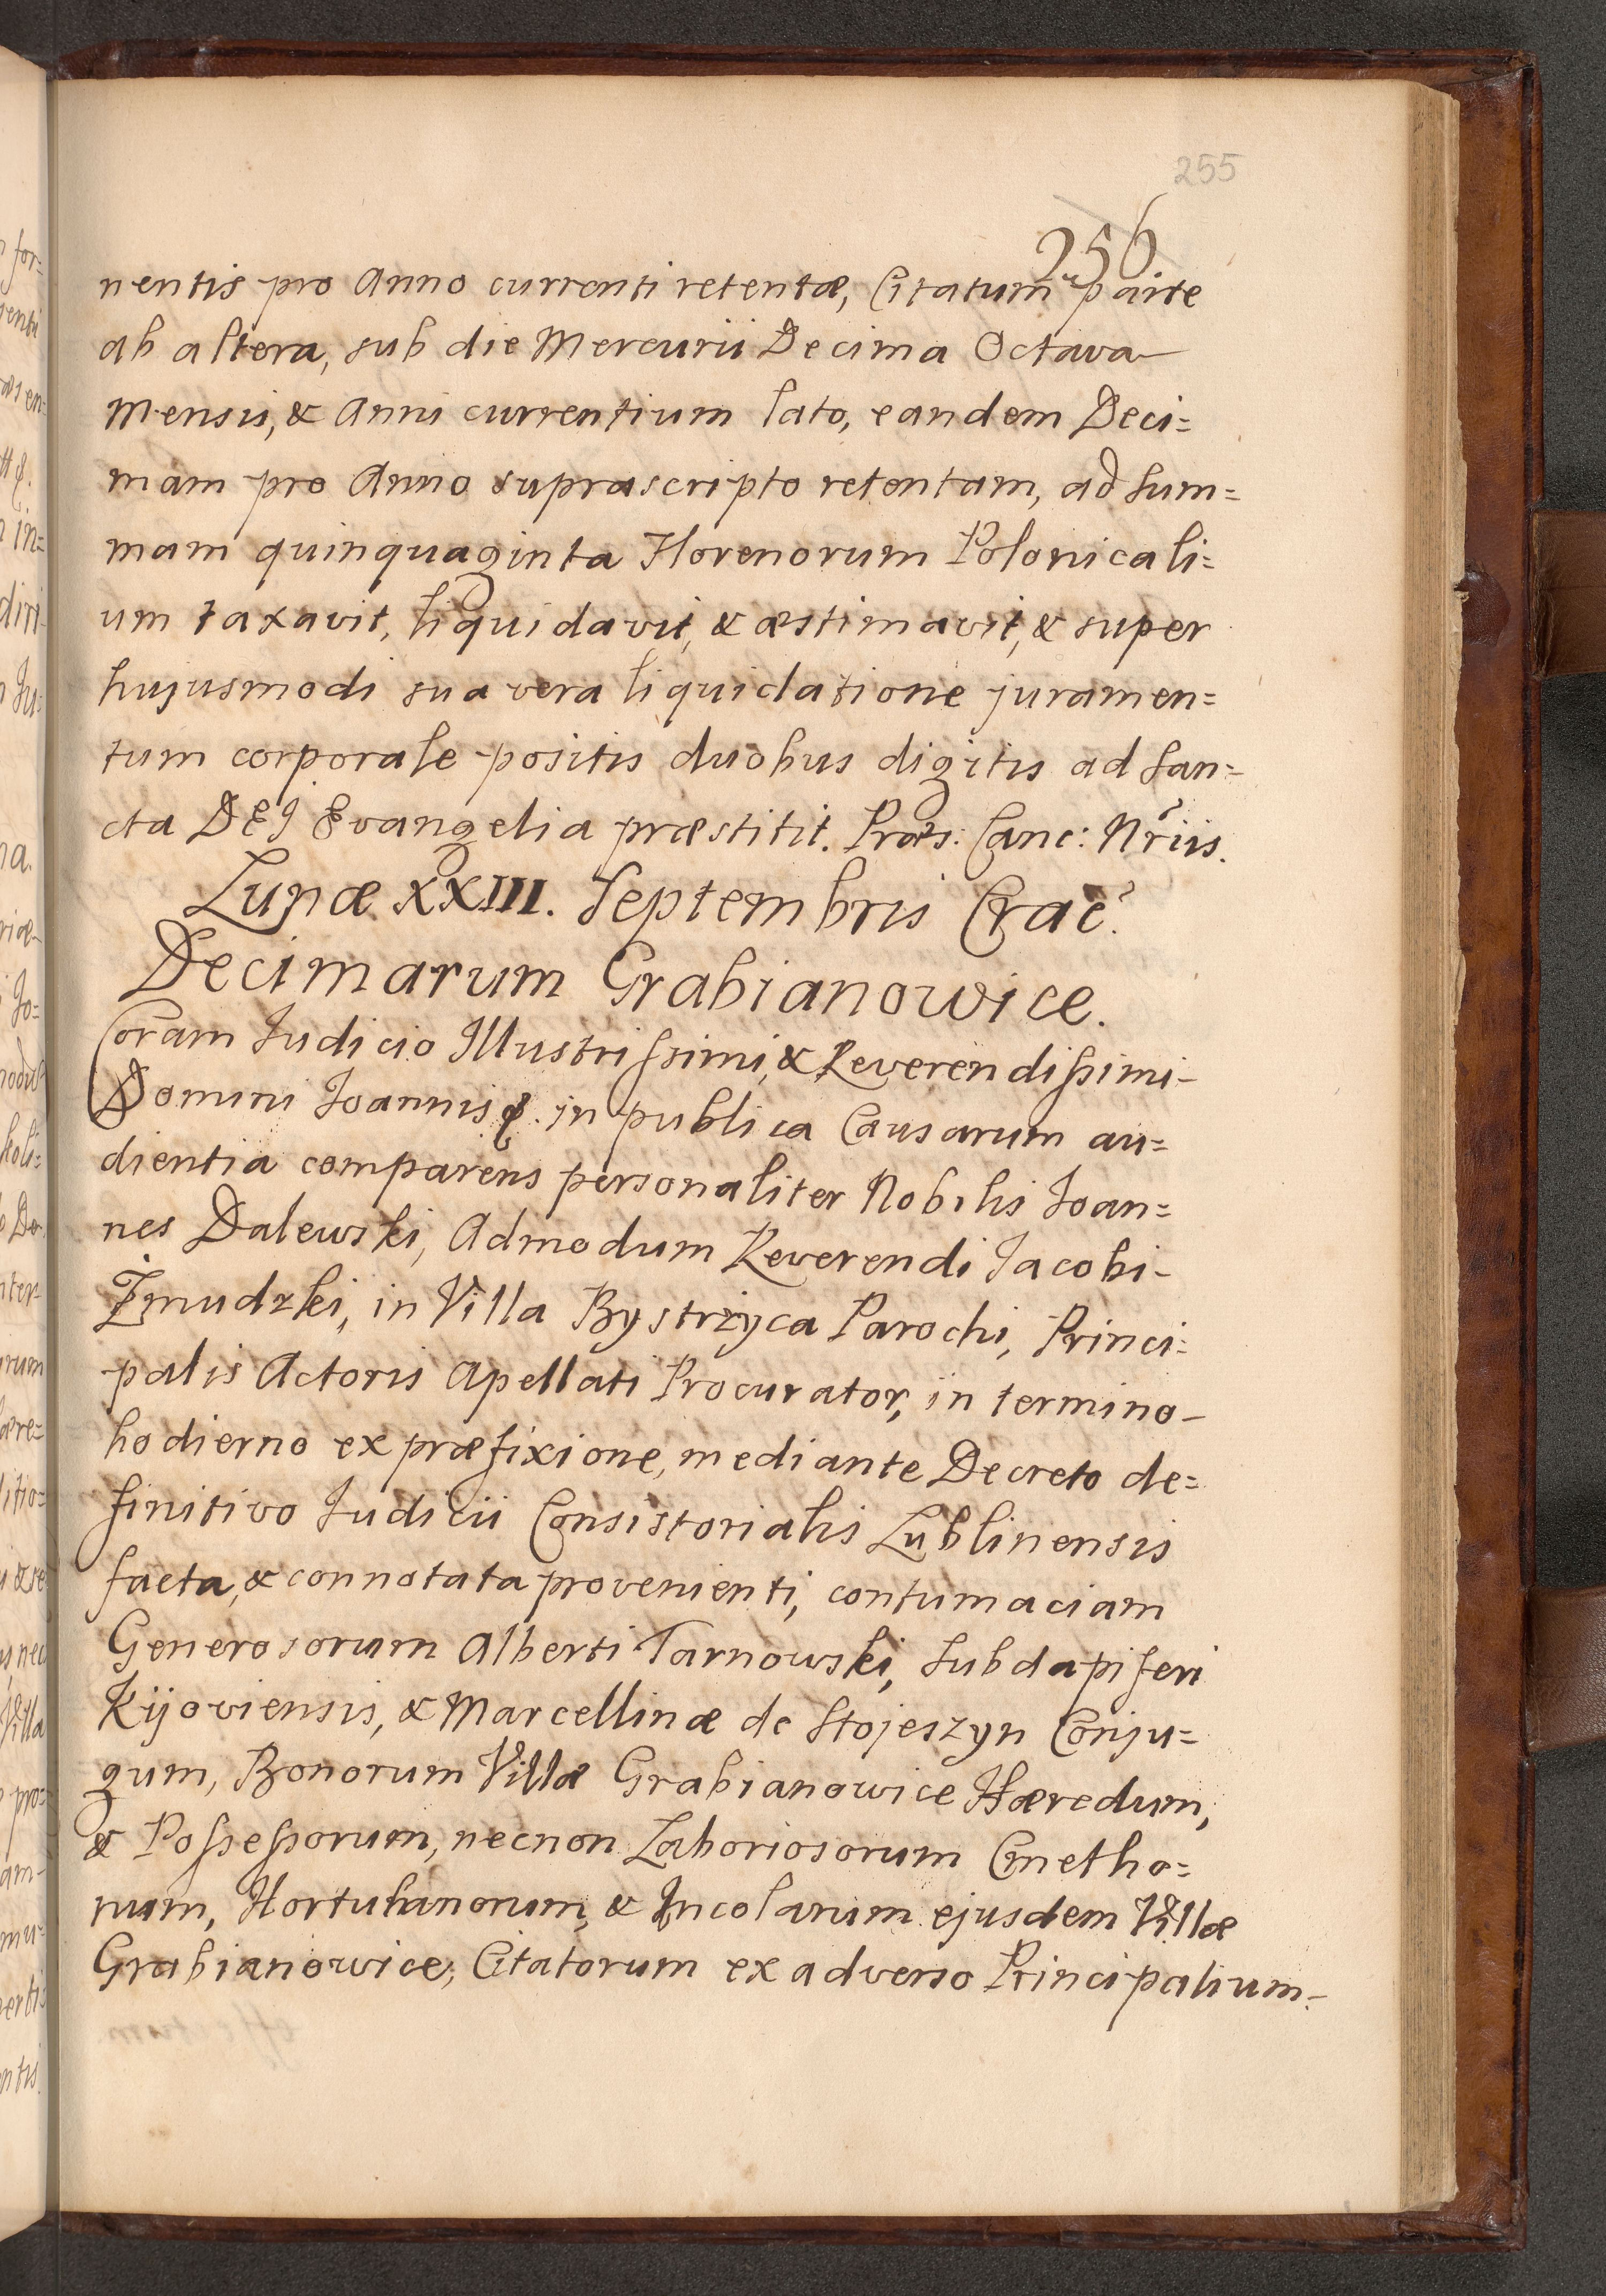 255
256
nentis pro Anno currenti retentæ, Citatum parte
ab altera, sub die Mercurii Decima Octava
Mensis, & Anni currentium lato, eandem Deci=
mam pro Anno suprascripto retentam, ad Sum=
mam quinquaginta Florenorum Polonicali=
um taxavit, liquidavit, & æstimavit, & super
hujusmodi sua vera liquidatione juramen=
tum corporale positis duobus digitis ad San=
cta DEJ Evangelia præstitit. Præs: Canc: Nriis.
Lunæ XXIII. Septembris Crac.
Decimarum Grabianowice.
Coram Judicio Illustrissimi, & Reverendissimi
Domini Joannis &. in publica Causarum au=
dientia comparens personaliter Nobilis Joan=
nes Dalewski, Admodum Reverendi Jacobi
Żmudzki, in Villa Bystrżyca Parochi, Princi=
palis Actoris Apellati Procurator, in termino
hodierno ex præfixione, mediante Decreto de=
finitivo Judicii Consistorialis Lublinensis
facta, & connotata provenienti, contumaciam
Generosorum Alberti Tarnowski, Subdapiferi
Kijoviensis, & Marcellinæ de Stojeszyn Conju=
gum, Bonorum Villæ Grabianowice Hæredum,
& Possessorum, necnon Laboriosorum Cmetho=
num, Hortulanorum, & Incolarum ejusdem Villæ
Grabianowice, Citatorum ex adverso Principalium